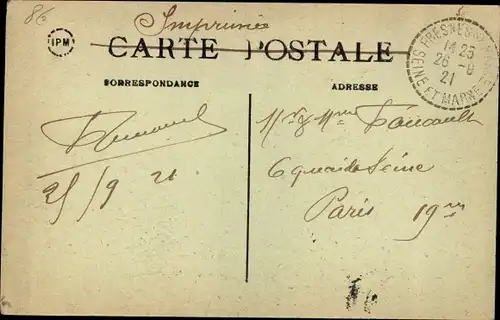 8€
Imprimée
IPM
CARTE POSTALE
CORRESPONDANCE
ADRESSE
FRESNES
SEINE ET MARNE
14 25
26 -9
21
25/9 21
Mr & Mme Foucault
6 quai de Seine
Paris 19me